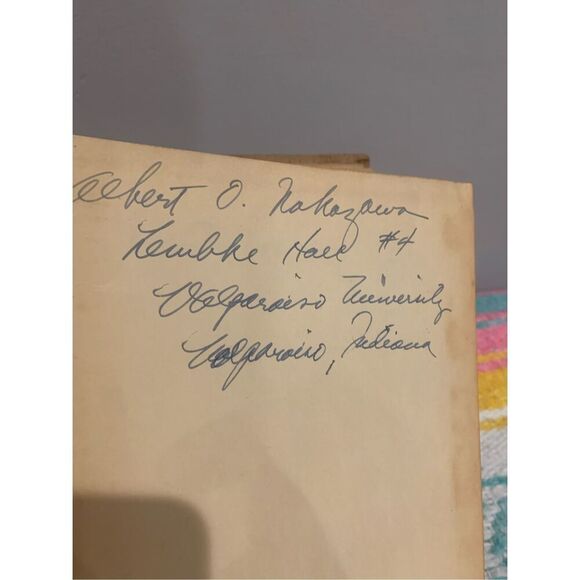 Albert O. Nakazawa
Lembke Hall #4
Valparaiso University
Valparaiso, Indiana